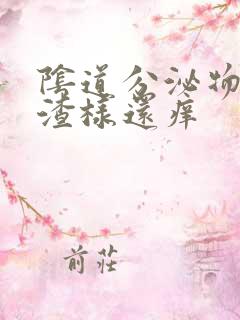 陰道分泌物
渣樣還痒
前莊